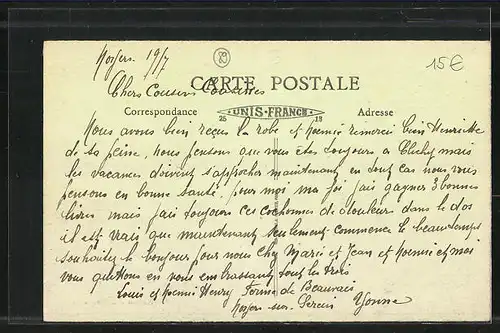 Noyers 19/7
89
15€
Chers Cousins Cousines
CARTE POSTALE
Correspondance
UNIS-FRANCE
Adresse
Nous avons bien reçus la robe et Noemie remerci bien Henriette
de sa peine, nous pensons que vous êtes toujours a Clichy mais
les vacances doivent s'approcher maintenant en tout cas nous vous
pensons en bonne santé, pour moi ma foi j'ais gagner 3 bonnes
livres mais j'ais toujours ces cochonnes de douleurs dans le dos
il est vrais que maintenant seulement commence le beau temps
souhaitez le bonjour pour nous Chez Marie et Jean et Noemie et moi
vous quittons en vous embrassant tout les trois
Louis et Noemie Henry Ferme de Beauvais
Noyers sur Serein Yonne